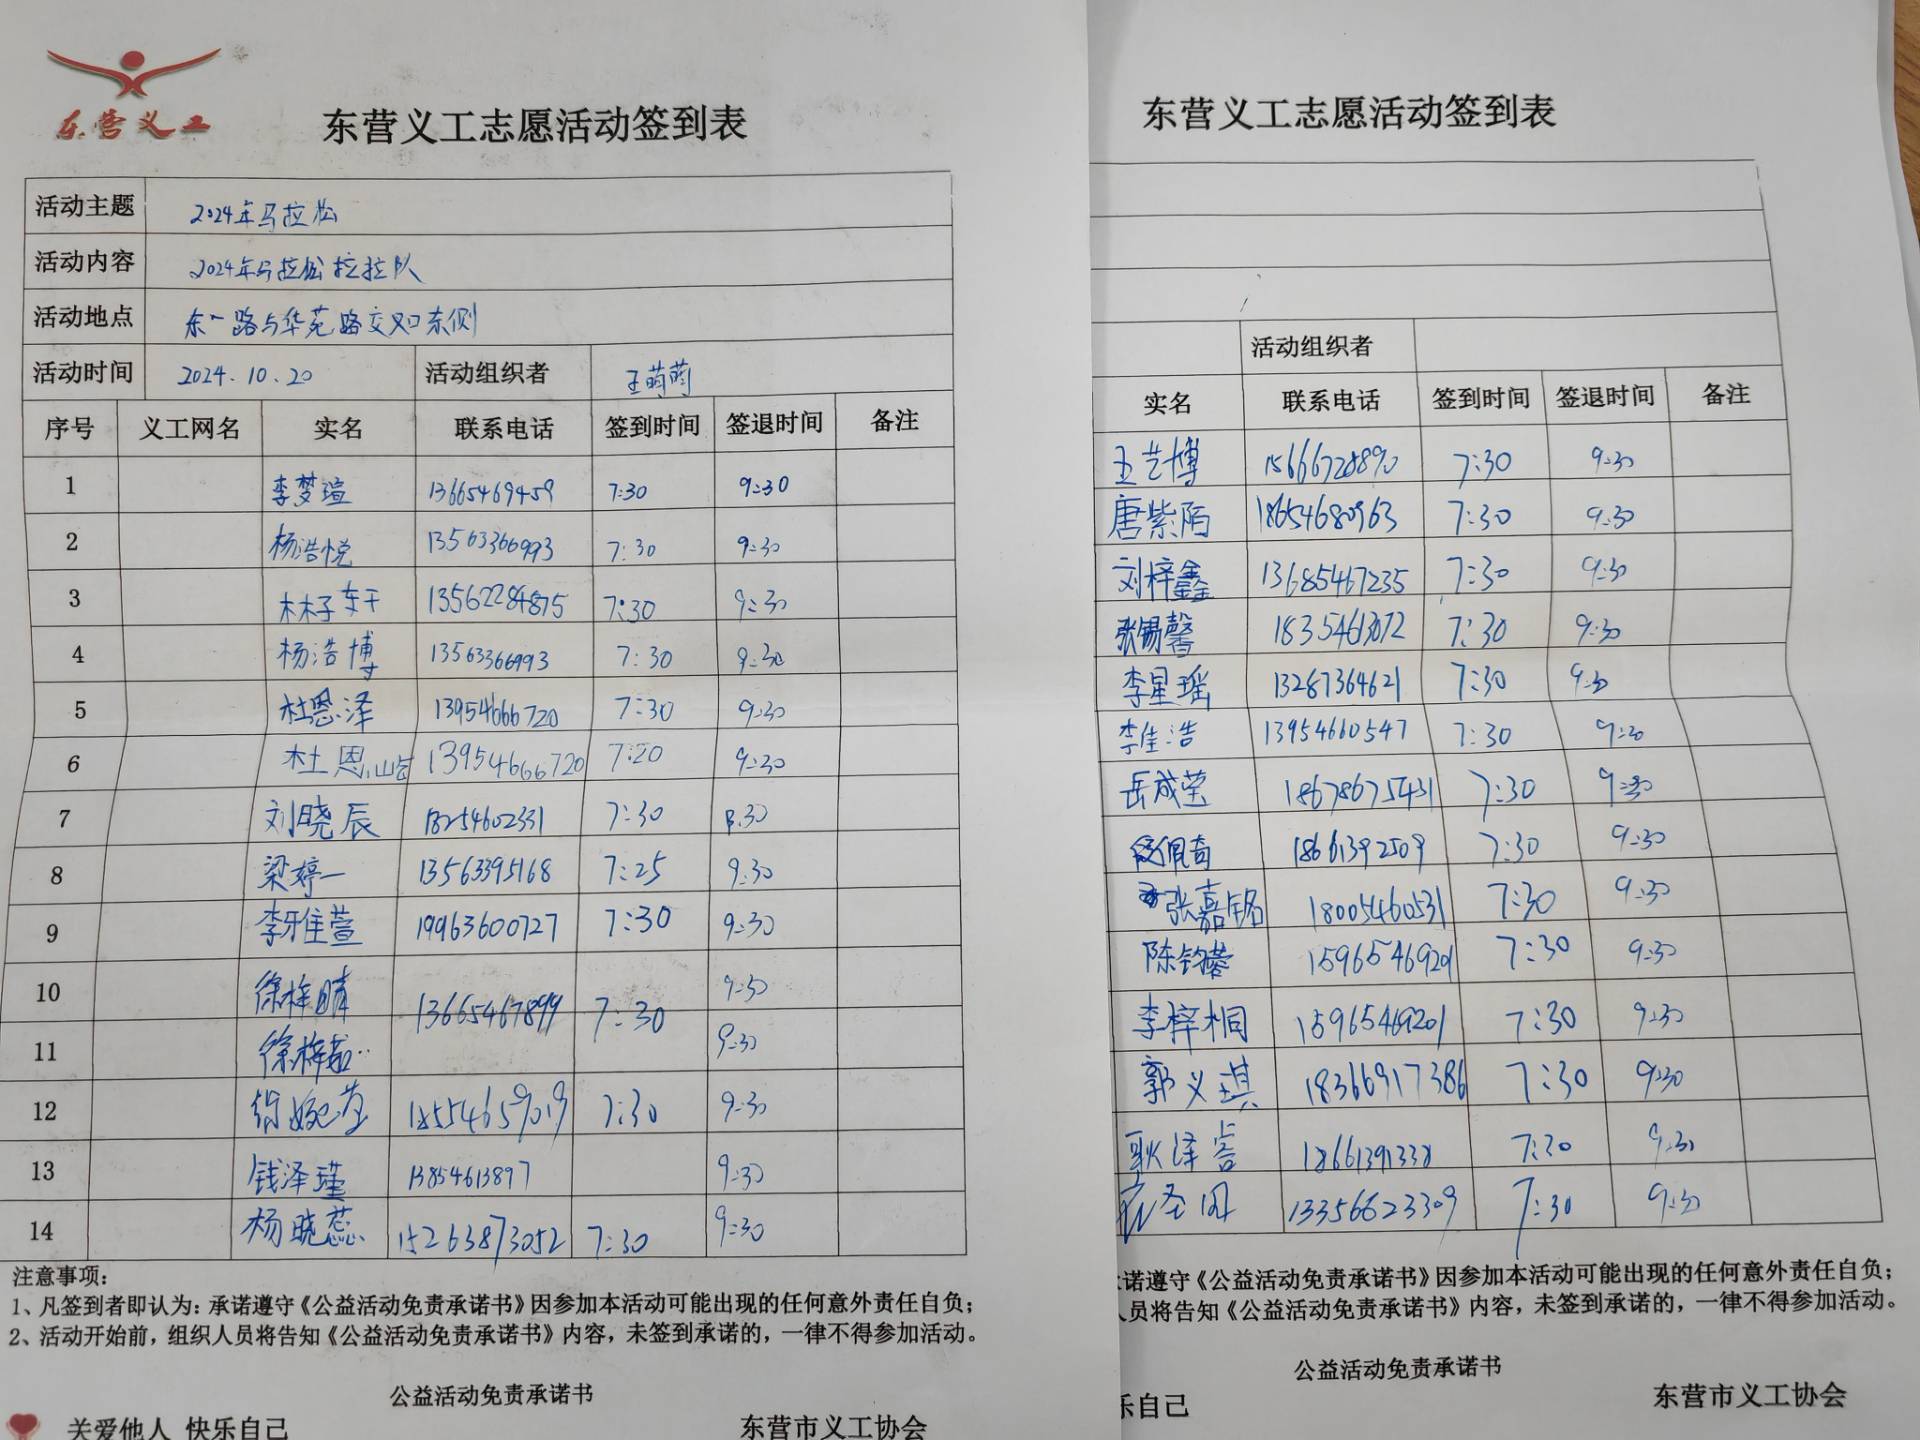 东营义工
东营义工志愿活动签到表
活动主题 2024年马拉松
活动内容 2024年马拉松拉拉队
活动地点 东一路与华苑路交叉口东侧
活动时间 2024.10.20 活动组织者 王萌萌
序号 义工网名 实名 联系电话 签到时间 签退时间 备注
1 李梦瑄 13665469459 7:30 9:30
2 杨浩悦 13563366993 7:30 9:30
3 13562284875 7:30 9:30
4 杨浩博 13563366993 7:30 9:30
5 杜恩泽 13954666720 7:30 9:30
6 杜恩 13954666720 7:20 9:30
7 刘晓辰 18254602331 7:30
8 梁婷一 13563395168 7:25 9:30
9 李雅萱 19963600727 7:30 9:30
10 徐梓晴 13665467899 7:30 9:30
11 徐梓 9:30
12 18554659019 7:30 9:30
13 钱泽瑾 13854613897 9:30
14 杨晓蕊 15263873052 7:30 9:30
注意事项：
1、凡签到者即认为：承诺遵守《公益活动免责承诺书》因参加本活动可能出现的任何意外责任自负；
2、活动开始前，组织人员将告知《公益活动免责承诺书》内容，未签到承诺的，一律不得参加活动。
公益活动免责承诺书
关爱他人 快乐自己
东营市义工协会
东营义工志愿活动签到表
活动组织者
实名 联系电话 签到时间 签退时间 备注
王艺博 15666728890 7:30 9:30
唐紫陌 18654680963 7:30 9:30
刘梓鑫 13685467235 7:30 9:30
张锡馨 18354613072 7:30 9:30
李星瑶 13287364621 7:30 9:30
李佳浩 13954660547 7:30 9:30
岳成莹 18678675431 7:30 9:30
佩奇 18661392509 7:30 9:30
张嘉铭 18005460531 7:30 9:30
陈钧蓁 15965469201 7:30 9:30
李梓桐 15965469201 7:30 9:30
郭义琪 18366917386 7:30 9:30
耿泽 18661391338 7:30 9:30
13356623309 7:30 9:30
诺遵守《公益活动免责承诺书》因参加本活动可能出现的任何意外责任自负；
人员将告知《公益活动免责承诺书》内容，未签到承诺的，一律不得参加活动。
公益活动免责承诺书
乐自己
东营市义工协会